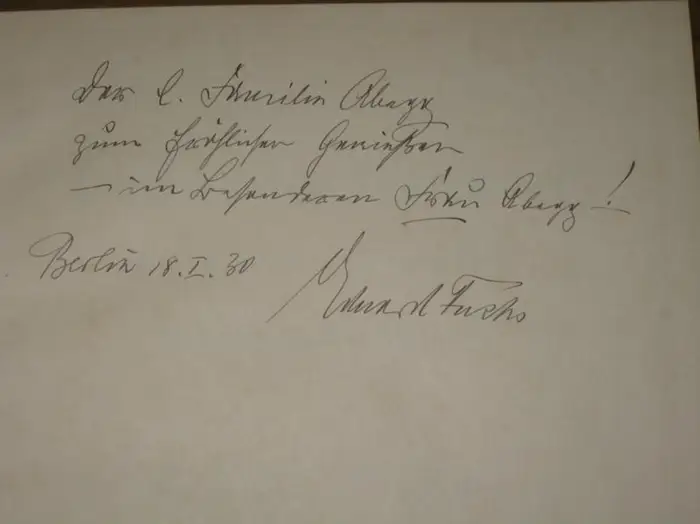 Der l. Familie Abegg
zum fröhlichen Genießen
— im Besonderen Frau Abegg!
Berlin 18.I.30
Eduard Fuchs